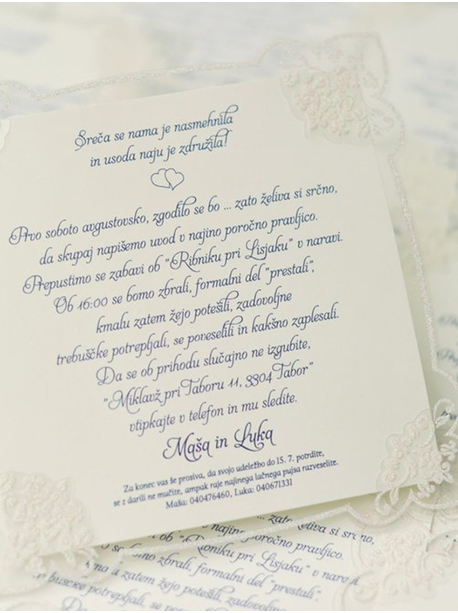 Sreča se nama je nasmehnila
in usoda naju je združila!
Prvo soboto avgustovsko, zgodilo se bo ... zato želiva si srčno,
da skupaj napišemo uvod v najino poročno pravljico.
Prepustimo se zabavi ob "Ribniku pri Lisjaku" v naravi.
Ob 16:00 se bomo zbrali, formalni del "prestali",
kmalu zatem žejo potešili, zadovoljne
trebuščke potrepljali, se poveselili in kakšno zaplesali.
Da se ob prihodu slučajno ne izgubite,
"Miklavž pri Taboru 11, 3304 Tabor"
vtipkajte v telefon in mu sledite.
Maša in Luka
Za konec vas še prosiva, da svojo udeležbo do 15. 7. potrdite,
se z darili ne mučite, ampak raje najinega lačnega pujsa razveselite.
Maša: 040476460, Luka: 040671331
zato želiva si srčno,
poročno pravljico.
Ribniku pri Lisjaku" v naravi
zbrali, formalni del "prestali",
zatem žejo potešili, zadovoljne